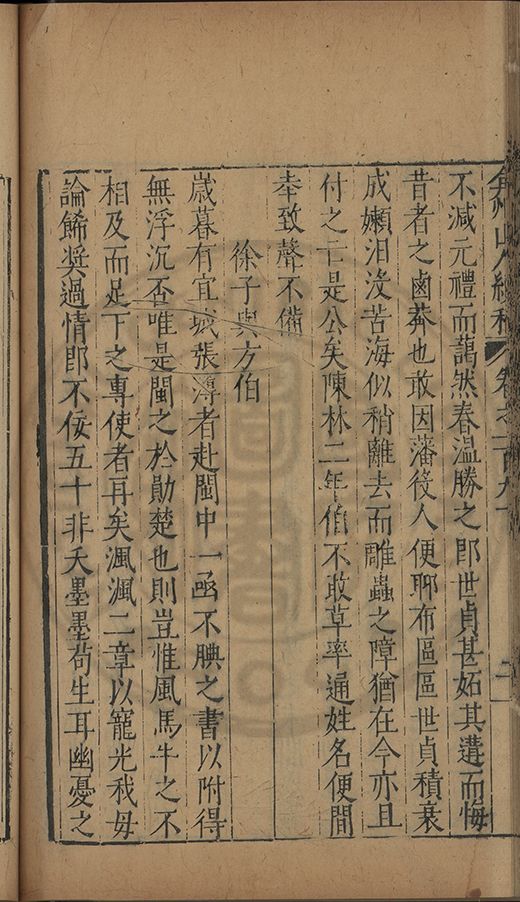 弇州山人續稿 卷之二百九十
不減元禮而藹然春溫勝之郎世貞甚妬其遘而悔
昔者之鹵莽也敢因藩役人便耶布區區世貞積衰
成嬾汨没苦海似稍離去而雕蟲之障猶在今亦且
付之亡是公矣陳林二年伯不敢草率通姓名便間
奉致聲不備
徐子與方伯
嵗暮有宜城張溥者赴閩中一函不腆之書以附得
無浮沉否唯是閩之於勛楚也則豈惟風馬牛之不
相及而足下之專使者再矣渢渢二章以寵光我毋
論餙奬過情郎不佞五十非夭墨墨苟生耳幽憂之